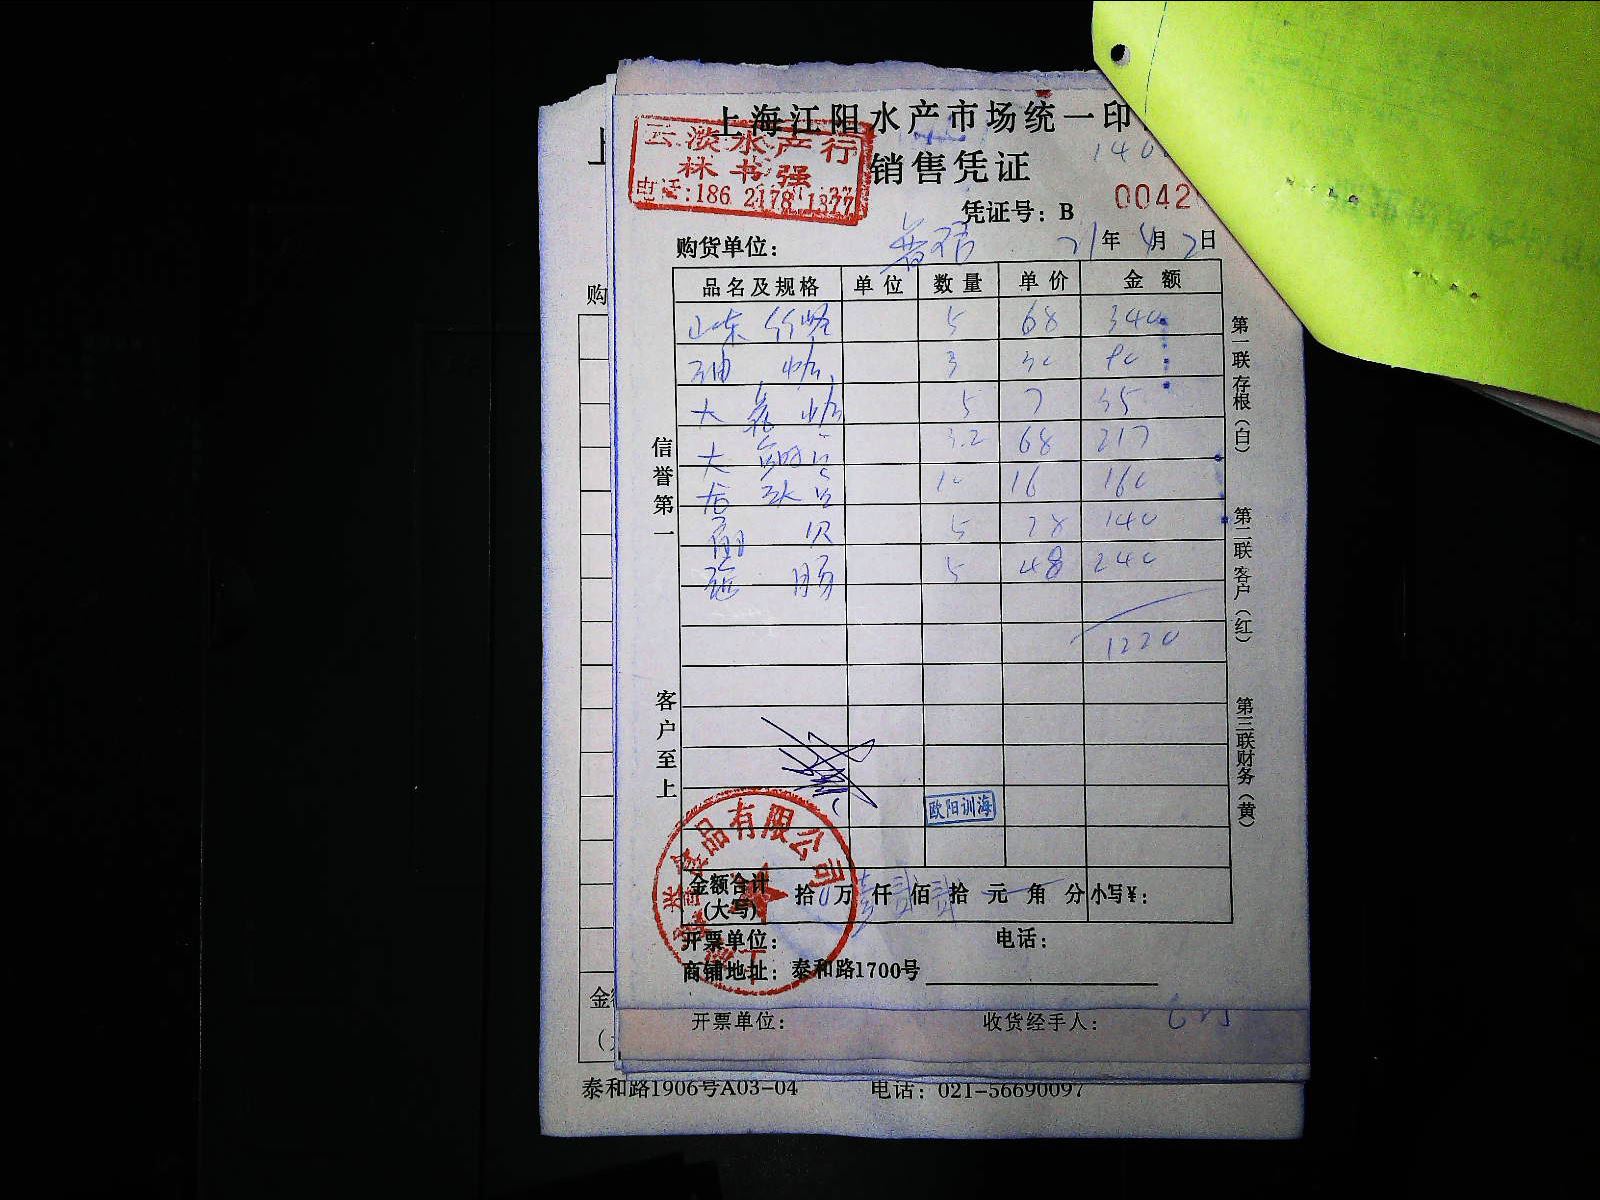 上海江阳水产市场统一印
云淡水产行
林书强
电话:186 2178 1377
销售凭证
140
凭证号: B 0042
购货单位: 21年4月2日
品名及规格 单位 数量 单价 金额
山东 5 68 340
油蛤 3 30 90
大 蛤 5 7 35
大 3.2 68 217
10 16 160
贝 5 28 140
肠 5 48 240
1220
信誉第一
客户至上
第一联存根(白)
第二联客户(红)
第三联财务(黄)
欧阳训海
食品有限公司
金额合计(大写) 拾 万 仟 佰 拾 元 角 分 小写¥:
开票单位: 电话:
商铺地址: 泰和路1700号
开票单位: 收货经手人:
泰和路1906号A03-04 电话: 021-56690097
购